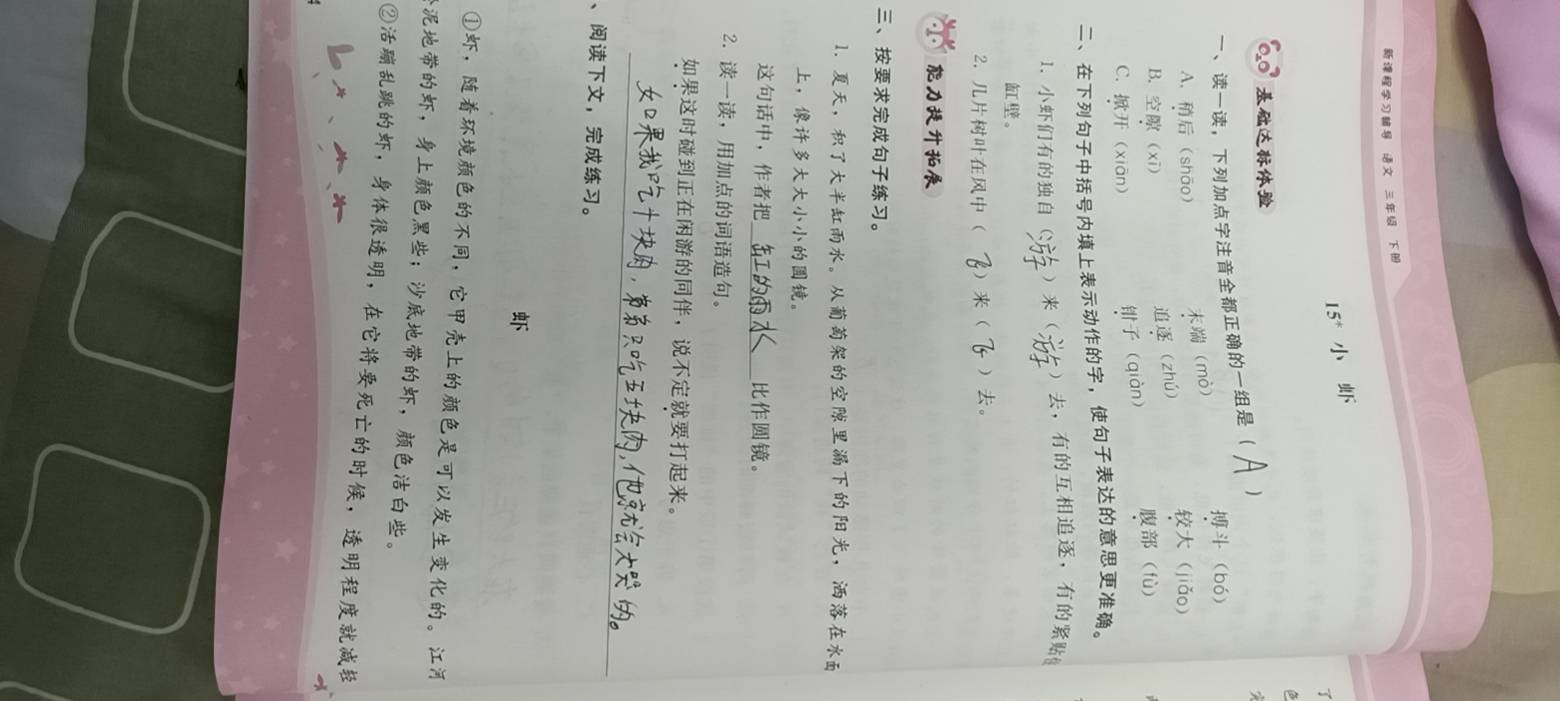 新课程学习辅导 语文 三年级 下册
15* 小 虾
基础达标体验
一、读一读，下列加点字注音全都正确的一组是（ A ）
A. 稍后（shāo） 末端（mò） 搏斗（bó）
B. 空隙（xì） 追逐（zhú） 较大（jiǎo）
C. 掀开（xiān） 钳子（qiàn） 腹部（fù）
二、在下列句子中括号内填上表示动作的字，使句子表达的意思更准确。
1. 小虾们有的独自（游）来（游）去，有的互相追逐，有的紧贴
缸壁。
2. 几片树叶在风中（飞）来（飞）去。
能力提升拓展
三、按要求完成句子练习。
1. 夏天，积了大半缸雨水。从葡萄架的空隙里漏下的阳光，洒落在水面
上，像许多大大小小的圆镜。
这句话中，作者把 缸的雨水 比作圆镜。
2. 读一读，用加点的词语造句。
如果这时碰到正在闲游的同伴，说不定就要打起来。
如果我吃十块肉，弟弟只吃五块肉，他就会大哭的。
、阅读下文，完成练习。
虾
①虾，随着环境颜色的不同，它甲壳上的颜色是可以发生变化的。江河
泥地带的虾，身上颜色黑些；沙底地带的虾，颜色洁白些。
②活蹦乱跳的虾，身体很透明，在它将要死亡的时候，透明程度就减轻
4
了
色